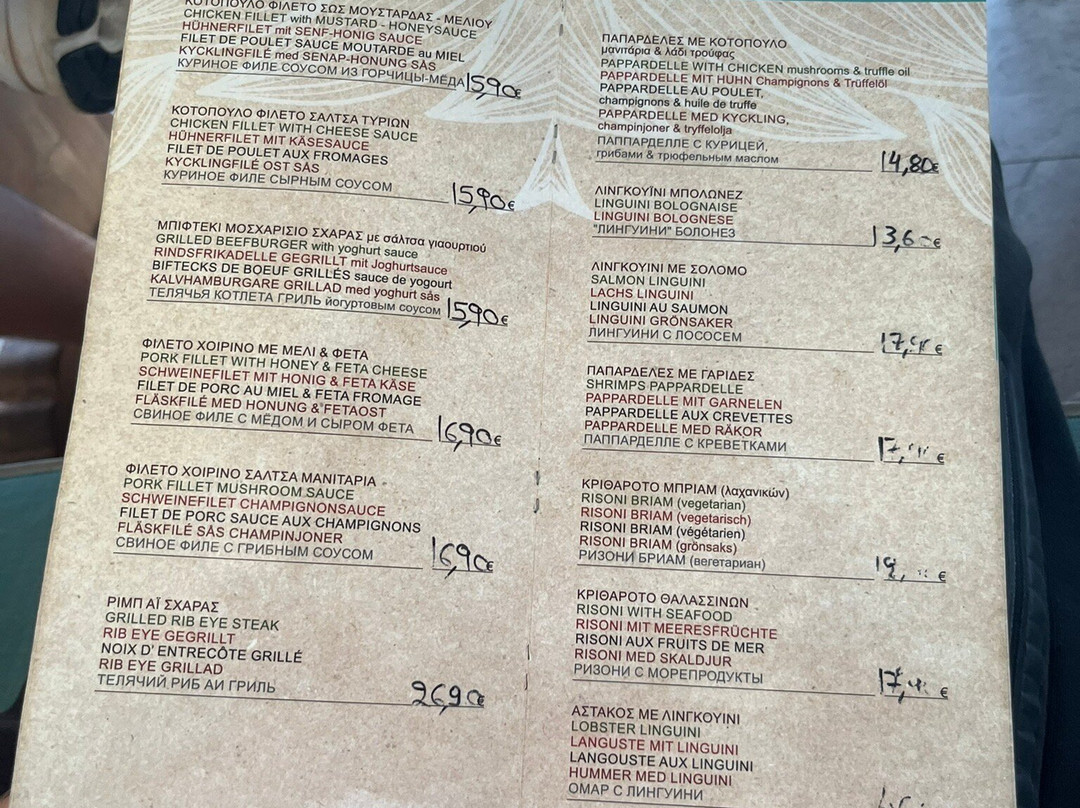 ΚΟΤΟΠΟΥΛΟ ΦΙΛΕΤΟ ΣΩΣ ΜΟΥΣΤΑΡΔΑΣ - ΜΕΛΙΟΥ
CHICKEN FILLET with MUSTARD - HONEYSAUCE
HÜHNERFILET mit SENF-HONIG SAUCE
FILET DE POULET SAUCE MOUTARDE au MIEL
KYCKLINGFILÉ med SENAP-HONUNG SÅS
КУРИНОЕ ФИЛЕ СОУСОМ ИЗ ГОРЧИЦЫ-МЁДА 15,90€
ΚΟΤΟΠΟΥΛΟ ΦΙΛΕΤΟ ΣΑΛΤΣΑ ΤΥΡΙΩΝ
CHICKEN FILLET WITH CHEESE SAUCE
HÜHNERFILET MIT KÄSESAUCE
FILET DE POULET AUX FROMAGES
KYCKLINGFILÉ OST SÅS
КУРИНОЕ ФИЛЕ СЫРНЫМ СОУСОМ 15,90€
ΜΠΙΦΤΕΚΙ ΜΟΣΧΑΡΙΣΙΟ ΣΧΑΡΑΣ με σάλτσα γιαουρτιού
GRILLED BEEFBURGER with yoghurt sauce
RINDSFRIKADELLE GEGRILLT mit Joghurtsauce
BIFTECKS DE BOEUF GRILLÉS sauce de yogourt
KALVHAMBURGARE GRILLAD med yoghurt sås
ТЕЛЯЧЬЯ КОТЛЕТА ГРИЛЬ йогуртовым соусом 15,90€
ΦΙΛΕΤΟ ΧΟΙΡΙΝΟ ΜΕ ΜΕΛΙ & ΦΕΤΑ
PORK FILLET WITH HONEY & FETA CHEESE
SCHWEINEFILET MIT HONIG & FETA KÄSE
FILET DE PORC AU MIEL & FETA FROMAGE
FLÄSKFILÉ MED HONUNG & FETAOST
СВИНОЕ ФИЛЕ С МЁДОМ И СЫРОМ ФЕТА 16,90€
ΦΙΛΕΤΟ ΧΟΙΡΙΝΟ ΣΑΛΤΣΑ ΜΑΝΙΤΑΡΙΑ
PORK FILLET MUSHROOM SAUCE
SCHWEINEFILET CHAMPIGNONSAUCE
FILET DE PORC SAUCE AUX CHAMPIGNONS
FLÄSKFILÉ SÅS CHAMPINJONER
СВИНОЕ ФИЛЕ С ГРИБНЫМ СОУСОМ 16,90€
ΡΙΜΠ ΑΪ ΣΧΑΡΑΣ
GRILLED RIB EYE STEAK
RIB EYE GEGRILLT
NOIX D' ENTRECÔTE GRILLÉ
RIB EYE GRILLAD
ТЕЛЯЧИЙ РИБ АИ ГРИЛЬ 26,90€
ΠΑΠΑΡΔΕΛΕΣ ΜΕ ΚΟΤΟΠΟΥΛΟ
μανιτάρια & λάδι τρούφας
PAPPARDELLE WITH CHICKEN mushrooms & truffle oil
PAPPARDELLE MIT HUHN Champignons & Trüffelöl
PAPPARDELLE AU POULET,
champignons & huile de truffe
PAPPARDELLE MED KYCKLING,
champinjoner & tryffelolja
ПАППАРДЕЛЛЕ С КУРИЦЕЙ,
грибами & трюфельным маслом 14,80€
ΛΙΝΓΚΟΥΪΝΙ ΜΠΟΛΩΝΕΖ
LINGUINI BOLOGNAISE
LINGUINI BOLOGNESE
"ЛИНГУИНИ" БОЛОНЕЗ 13,6 €
ΛΙΝΓΚΟΥΙΝΙ ΜΕ ΣΟΛΟΜΟ
SALMON LINGUINI
LACHS LINGUINI
LINGUINI AU SAUMON
LINGUINI GRÖNSAKER
ЛИНГУИНИ С ЛОСОСЕМ 17, €
ΠΑΠΑΡΔΕΛΕΣ ΜΕ ΓΑΡΙΔΕΣ
SHRIMPS PAPPARDELLE
PAPPARDELLE MIT GARNELEN
PAPPARDELLE AUX CREVETTES
PAPPARDELLE MED RÄKOR
ПАППАРДЕЛЛЕ С КРЕВЕТКАМИ 17, €
ΚΡΙΘΑΡΟΤΟ ΜΠΡΙΑΜ (λαχανικών)
RISONI BRIAM (vegetarian)
RISONI BRIAM (vegetarisch)
RISONI BRIAM (végétarien)
RISONI BRIAM (grönsaks)
РИЗОНИ БРИАМ (вегетариан) €
ΚΡΙΘΑΡΟΤΟ ΘΑΛΑΣΣΙΝΩΝ
RISONI WITH SEAFOOD
RISONI MIT MEERESFRÜCHTE
RISONI AUX FRUITS DE MER
RISONI MED SKALDJUR
РИЗОНИ С МОРЕПРОДУКТЫ 17, €
ΑΣΤΑΚΟΣ ΜΕ ΛΙΝΓΚΟΥΙΝΙ
LOBSTER LINGUINI
LANGUSTE MIT LINGUINI
LANGOUSTE AUX LINGUINI
HUMMER MED LINGUINI
ОМАР С ЛИНГУИНИ